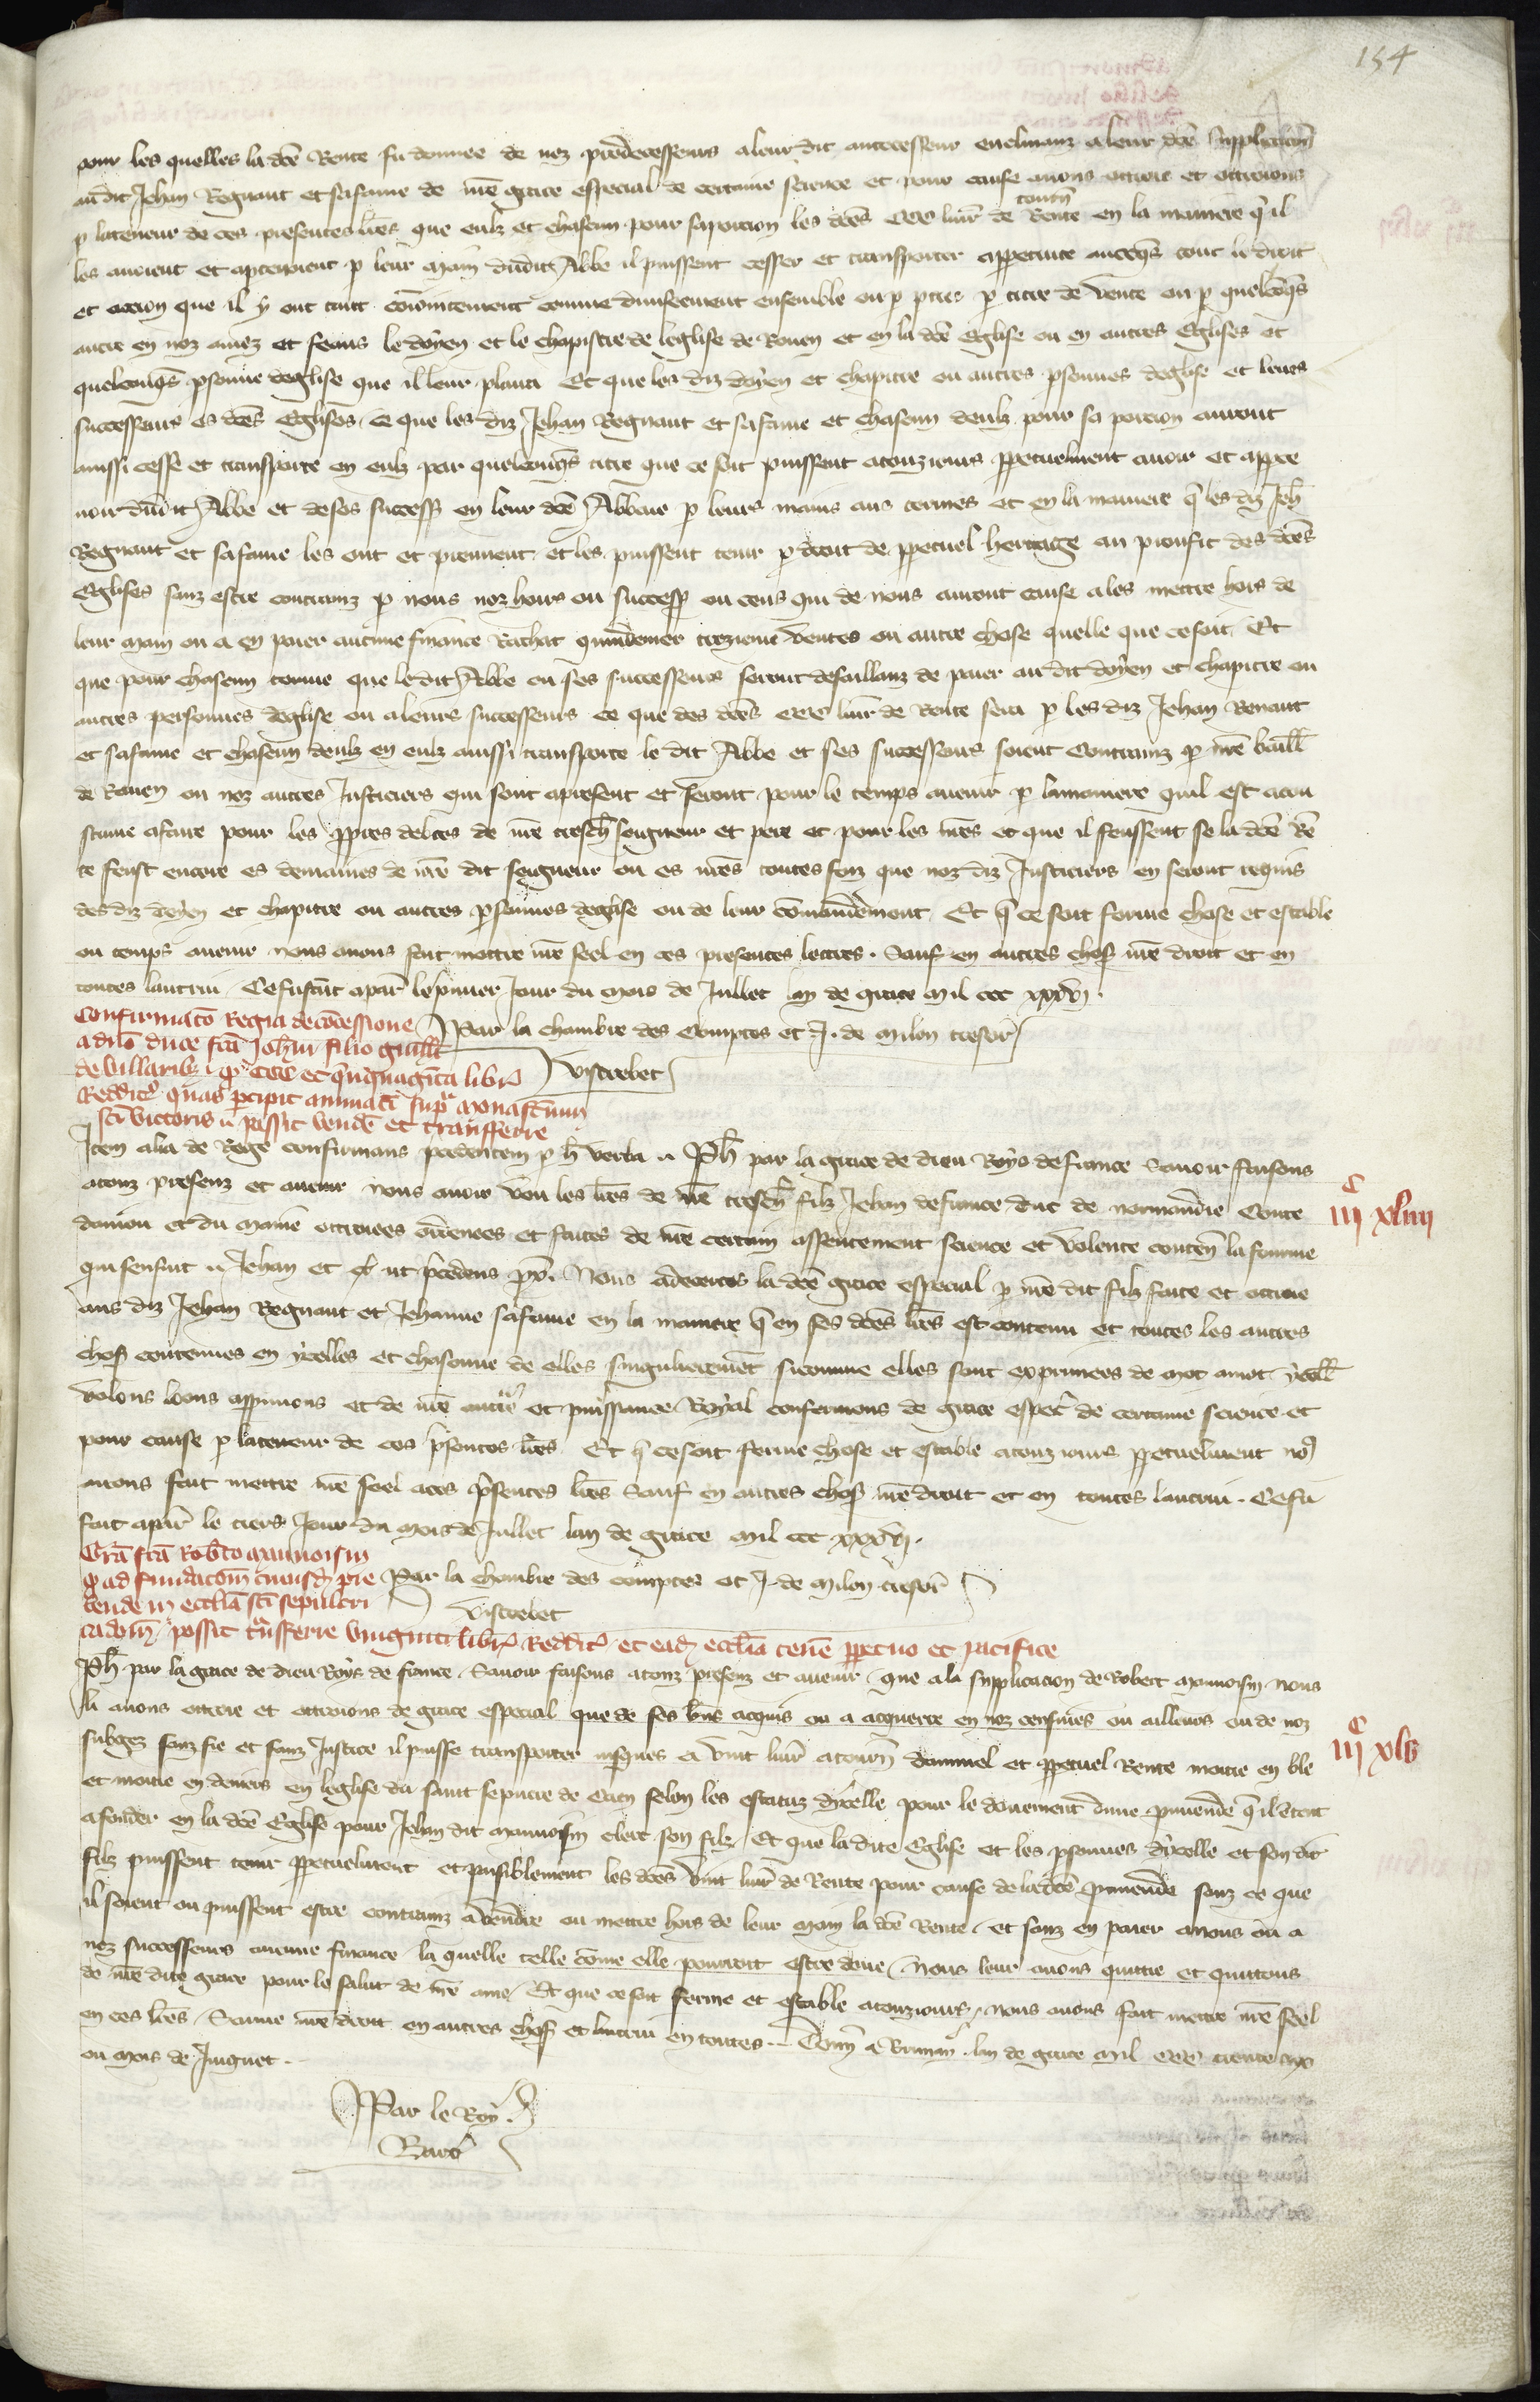 154
pour les quelles la dce Rente fu donnee de noz predecesseurs a leur dit ancecesseur enclinanz a leur dce supplicacion
au dit Jehan Regnaut et sa fame de nre grace especial de certaine science et pour cause avons ottroie et ottroions
p la teneur de ces presentes lres que eulz et chascun pour sa porcion les dces ccc livr de tourn Rente en la maniere q il
les avoient et aptenoient p leur main dudit Abbe il puissent cesser et transporter appetuite avecqs tout le droit
et accion que il y ont tant conioinctement comme divisement ensemble ou p pties p titre de vente ou p quelcoqs
autre en noz amez et feaus le doyen et le chapistre de leglise de Rouen et en la dce Eglise ou en autres Eglises et
quelconqs psonne deglise que il leur plaira Et que les diz doyen et chapitre ou autres psonnes deglise et leurs
successeurs es dces Eglises ce que les diz Jehan Regnaut et sa fame et chascun deulz pour sa porcion auront
aussi cesse et transporte en eulz par quelconqs titre que ce soit puissent a touz iours ppetuelment avoir et appte
noir dudit Abbe et de ses success en leur dce Abbaie p leurs mains aus termes et en la maniere q les diz Jeh
Regnaut et sa fame les ont et prennent et les puissent tenir p droit de ppetuel heritage au proufit des dces
Eglises sanz estre contrainz p nous noz hoirs ou success ou ceus qui de nous auront cause a les mettre hors de
leur main ou a en paier aucune finance Rachat quindenier treziemes ventes ou autre chose quelle que ce soit Et
que pour chascun terme que le dit Abbe ou ses successeurs seront defaillanz de paier au dit doyen et chapitre ou
autres personnes deglise ou a leurs successeurs ce que des dces ccc livr de Rente sera p les diz Jehan Renaut
et sa fame et chascun deulz en eulz aussi transporte le dit Abbe et ses successeurs soient contrainz p nre baill
de Rouen ou noz autres Justiciers qui sont a present et seront pour le temps avenir p la maniere quil est acou
stume a faire pour les ppres debtes de nre tresch seigneur et pere et pour les nres et que il feussent se la dce Re
te feust encore es demaines de nre dit seigneur ou es nres toutes foiz que noz diz Justiciers en seront requis
des diz doyen et chapitre ou autres psonnes deglise ou de leur comandement Et q ce soit ferme chose et estable
ou temps avenir nous avons fait mettre nre seel en ces presentes lectres. Sauf en autres chos nre droit et en
toutes lautrui Ce fu fait a par le pmier Jour du mois de Jullet lan de grace mil ccc xxxvj.
Confirmaco Regia de concessione Par la chambre des Comptes et J. de Milon tresor
a dno duce fca Johni filio Guill
de Villaribz q ccc et quinquaginta libr Vistrebet
Redditu quas pcipit annuati supra monasterium
sci victoris u possit vende et transferre
Item alia de Rege confirmans pcedentem p h verba .. Ph par la grace de dieu Roys de france Savoir faisons
a touz presenz et avenir nous avoir veu les lres de nre tresch filz Jehan de france duc de normandie Conte
iij c xliiij
daniou et du maine ottroiees ordenees et faites de nre certain assentement science et volente conten la fourme
qui sensuit .. Jehan et c ut pcedens px. Nous adecertes la dce grace especial p nre dit filz faite et ottroie
aus diz Jehan Regnaut et Jehanne sa fame en la maniere q en ses dces lres est contenu et toutes les autres
chos contenues en ycelles et chascune de elles singulierement sicomme elles sont exprimees de mot a mot ycell
volons loons approuuons et de nre autre et puissance Royal confermons de grace especr de certaine science et
pour cause p la teneur de ces psentes lres Et q ce soit ferme chose et estable a touz iours ppetuelment nos
avons fait mettre nre seel a ces psentes lres Sauf en autres chos nre droit et en toutes lautrui. Ce fu
fait a par le tiers Jour du mois de Jullet lan de grace mil ccc xxxvj.
Gra fca Robto Mauuoisin
q ad fundacom cuiusd pre Par la chambre des comptes et J. de Milon tresor
bende in ecclia sci sepulcri Vistrebet
cadom possit transferre viuginti libr Reddit et ead ecclia tene ppetuo et pacifice
Ph par la grace de dieu Roys de france Savoir faisons a touz presenz et avenir que a la supplicacion de Robert mauuoisin nous
li avons ottroie et ottroions de grace especial que de ses bens acquis ou a acquerre en noz censives ou ailleurs ou de noz
subgez sanz fie et sanz Justice il puisse transporter iusques a vint livr a tourn dannuel et ppetuel Rente moitie en ble
iij c xlv
et moitie en deniers en leglise du saint sepucre de Caen selon les estatuz dycelle pour le douement dune provende q il entent
a fonder en la dce Eglise pour Jehan dit mauuoisin clerc son filz Et que la dite Eglise et les psonnes dycelle et son dit
filz puissent tenir ppetuelment et paisiblement les dces vint livr de Rente pour cause de la dce provende sanz ce que
il soient ou puissent estre contrainz a vendre ou mettre hors de leur main la dce Rente et sanz en paier a nous ou a
noz successeurs aucune finance la quelle telle come elle pourroit estre deue Nous leur avons quittie et quittons
de nre dite grace pour le salut de nre ame Et que ce soit ferme et estable a touziours nous avons fait mettre nre seel
en ces lres Sauue nre droit en autres chos et lautrui en toutes. Donn a lan de grace mil ccc trente six
ou mois de Juignet.
Par le Roy.